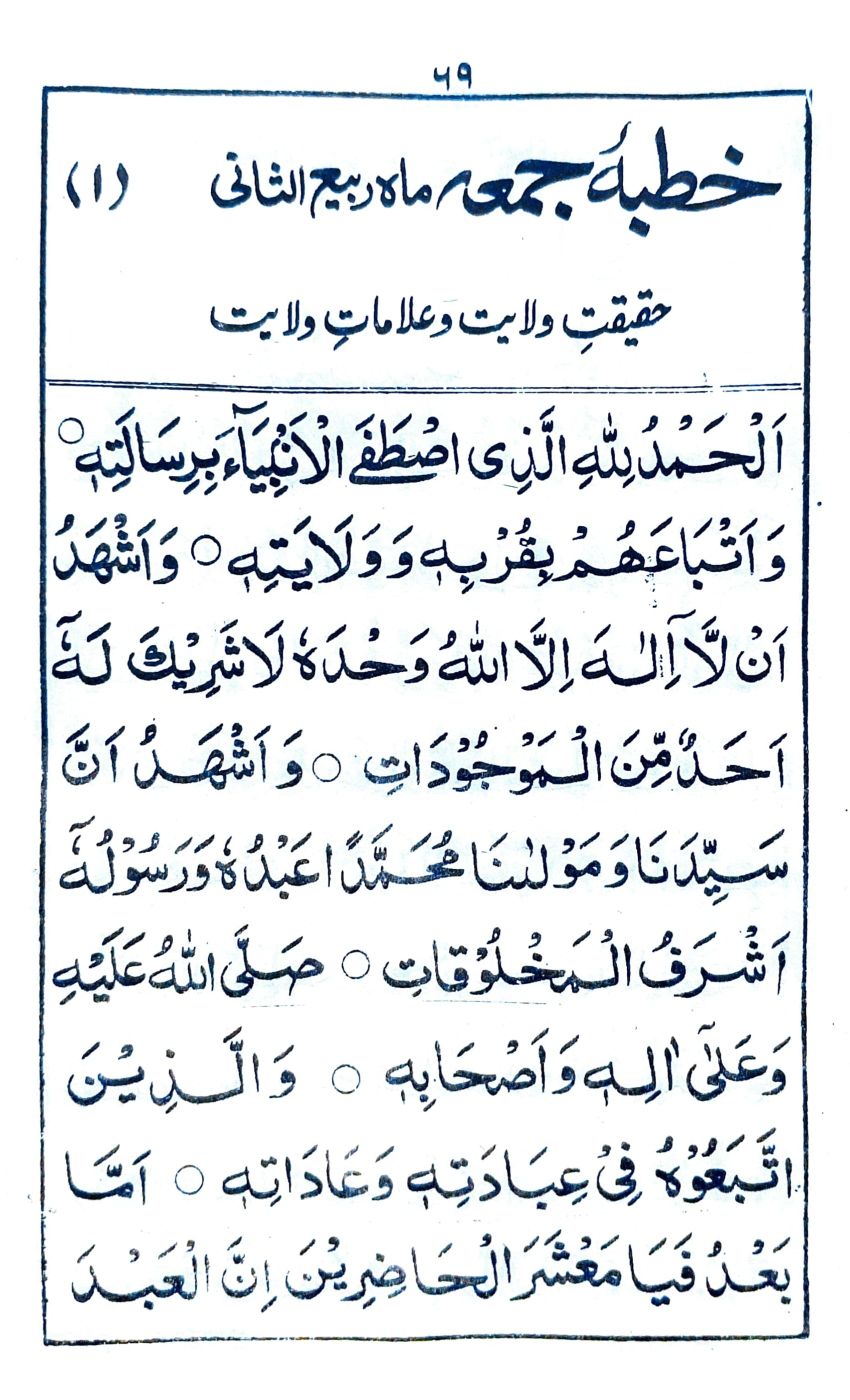 ۶۹
خطبۂ جمعہ ماہ ربیع الثانی (۱)
حقیقتِ ولایت و علاماتِ ولایت
اَلْحَمْدُ لِلّٰهِ الَّذِی اصْطَفَے الْاَنْۢبِیَآءَ بِرِسَالَتِهٖ ○
وَ اَتْبَاعَهُمْ بِقُرْبِهٖ وَ وَلَایَتِهٖ ○ وَ اَشْهَدُ
اَنْ لَّاۤ اِلٰهَ اِلَّا اللّٰهُ وَحْدَهٗ لَا شَرِیْكَ لَهٗۤ
اَحَدٌ مِّنَ الْمَوْجُوْدَاتِ ○ وَ اَشْهَدُ اَنَّ
سَیِّدَنَا وَ مَوْلٰىنَا مُحَمَّدًا عَبْدُهٗ وَرَسُوْلُهٗۤ
اَشْرَفُ الْمَخْلُوْقَاتِ ○ صَلَّی اللّٰهُ عَلَیْهِ
وَعَلٰۤی اٰلِهٖ وَ اَصْحَابِهٖ ○ وَ الَّذِیْنَ
اتَّبَعُوْهُ فِیْ عِبَادَتِهٖ وَ عَادَاتِهٖ ○ اَمَّا
بَعْدُ فَیَا مَعْشَرَ الْحَاضِرِیْنَ اِنَّ الْعَبْدَ